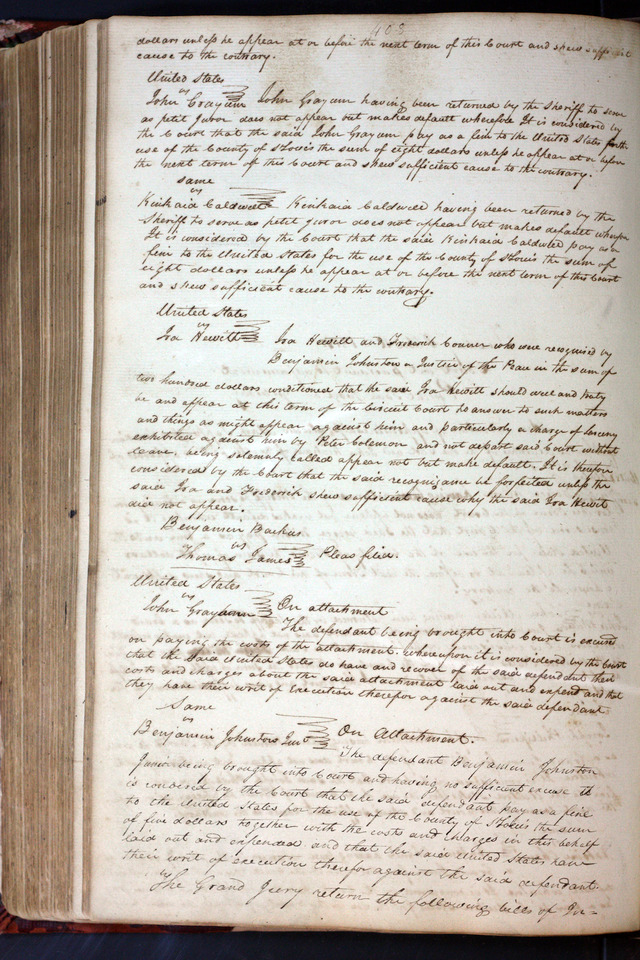 408
dollars unless he appear at or before the next term of this Court and shew sufficient
cause to the contrary.
United States
vs
John Grayum John Grayum having been returned by the Sheriff to serve
as petit juror does not appear but makes default wherefore It is considered by
the Court that the said John Grayum pay as a fine to the United States for the
use of the County of St Louis the sum of eight dollars unless he appear at or before
the next term of this Court and shew sufficient cause to the contrary.
same
vs
Kinkaid Caldwell Kinkaid Caldwell having been returned by the
Sheriff to serve as petit juror does not appear but makes default whereupon
It is considered by the Court that the said Kinkaid Caldwell pay as a
fine to the United States for the use of the County of St Louis the sum of
eight dollars unless he appear at or before the next term of this Court
and shew sufficient cause to the contrary.
United States
vs
Ira Hewitt Ira Hewitt and Frederick Conner who were recognised by
Benjamin Johnston a Justice of the Peace in the sum of
two hundred dollars conditioned that the said Ira Hewitt should well and truly
be and appear at this term of the Circuit Court to answer to such matters
and things as might appear against him and particularly a charge of larceny
exhibited against him by Peter Colemon and not depart said Court without
leave. being solemnly called appear not but make default. It is therefore
considered by the Court that the said recognizance be forfeited unless the
said Ira and Frederick shew sufficient cause why the said Ira Hewit
did not appear.
Benjamin Backus
vs
Thomas James Pleas filed.
United States
vs
John Grayum On attachment
The defendant being brought into Court is excused
on paying the costs of the attachment. whereupon it is considered by the Court
that the said United States do have and recover of the said defendant their
costs and charges about the said attachment laid out and expend and that
they have their writ of Execution therefor against the said defendant
Same
vs
Benjamin Johnston Junr On Attachment.
The defendant Benjamin Johnston
Junior being brought into Court and having no sufficient excuse it
is considered by the Court that the said defendant pay as a fine
to the United States for the use of the County of St Louis the sum
of five dollars together with the costs and charges in this behalf
laid out and expended. and that the said United States have
their writ of execution therefor against the said defendant.
The Grand Jury return the following bills of In=